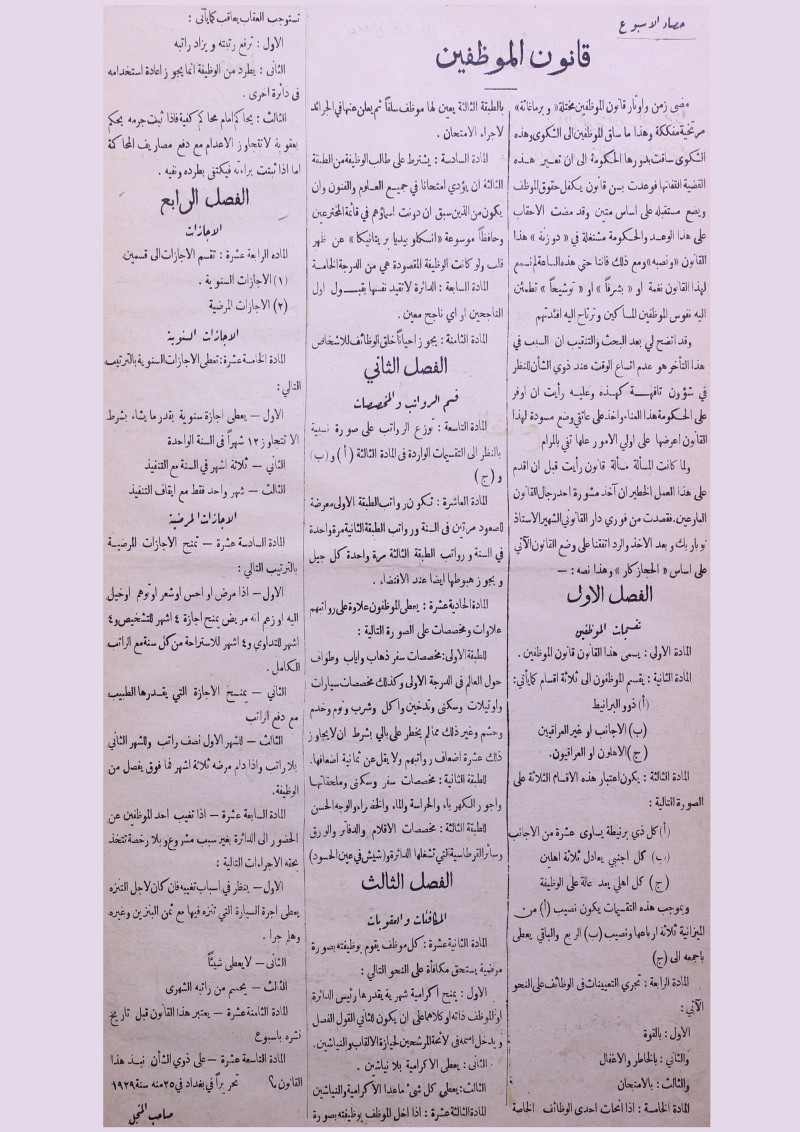 حصاد الاسبوع
قانون الموظفين
مضى زمن واوتار قانون الموظفين مختلة « وبرماغاته »
مرتخية مفككة وهذا ما ساق الموظفين الى الشكوى وهذه
الشكوى ساقت بدورها الحكومة الى ان تعير هذه
القضية التفاتها فوعدت بسن قانون يكفل حقوق الموظف
ويضع مستقبله على اساس متين وقد مضت الاحقاب
على هذا الوعد والحكومة مشتغلة في « دوزنة » هذا
القانون « ونصبه » ومع ذلك فاننا حتي هذه الساعة لم نسمع
لهذا القانون نغمة او « بشرفاً » او « توشيحاً » تطمئن
اليه نفوس الموظفين المساكين وترتاح اليه افئدتهم
وقد اتضح لي بعد البحث والتنقيب ان السبب في
هذا التأخر هو عدم اتساع الوقت عند ذوي الشأن للنظر
في شؤون تافهة كهذه وعليه رأيت ان اوفر
على الحكومة هذا العناء واخذ على عاتقي وضع مسودة لهذا
القانون اعرضها على اولي الامور علها تفي بالمرام
ولما كانت المسألة مسألة قانون رأيت قبل ان اقدم
على هذا العمل الخطير ان آخذ مشورة احد رجال القانون
البارعين. فقصدت من فوري دار القانوني الشهير الاستاذ
نوبار بك وبعد الاخذ والرد اتفقنا على وضع القانون الآتي
على اساس « الحجازكار » وهذا نصه : —
الفصل الاول
تقسيمات الموظفين
المادة الاولى : يسمى هذا القانون قانون الموظفين .
المادة الثانية : يقسم الموظفون الى ثلاثة اقسام كما يأتي :
(أ) ذوو البرانيط
(ب) الاجانب او غير العراقيين
(ج) الاهلون او العراقيون.
المادة الثالثة : يكون اعتبار هذه الاقسام الثلاثة على
الصورة التالية :
(أ) كل ذي برنيطة يساوى عشرة من الاجانب
(ب) كل اجنبي يعادل ثلاثة اهلين
(ج) كل اهلي يعد عالة على الوظيفة
وبموجب هذه التقسيمات يكون نصيب (أ) من
الميزانية ثلاثة ارباعها ونصيب (ب) الربع والباقي يعطى
باجمعه الى (ج)
المادة الرابعة : تجري التعيينات في الوظائف على النحو
الآتي :
الاول : بالقوة
والثاني : بالخاطر والاغفال
والثالث : بالامتحان
المادة الخامسة : اذا انحلت احدى الوظائف الخاصة
بالطبقة الثالثة يعين لها موظف سلفاً ثم يعلن عنها في الجرائد
لاجراء الامتحان .
المادة السادسة : يشترط على طالب الوظيفة من الطبقة
الثالثة ان يؤدي امتحانا في جميع العلوم والفنون وان
يكون من الذين سبق ان دونت اسماؤهم في قائمة المخترعين
وحافظاً موسوعة « انسكلوبيديا بريتانيكا » عن ظهر
قلب ولو كانت الوظيفة المقصودة هي من الدرجة الخامسة
المادة السابعة : الدائرة لا تقيد نفسها بقبول اول
الناجحين او اي ناجح معين .
المادة الثامنة : يجوز احياناً خلق الوظائف للاشخاص
الفصل الثاني
قسم الرواتب والمخصصات
المادة التاسعة : توزع الرواتب على صورة نسبية
بالنظر الى التقسيمات الواردة في المادة الثالثة (أ) و (ب)
و (ج)
المادة العاشرة : تكون رواتب الطبقة الاولى معرضة
للصعود مرتين في السنة ورواتب الطبقة الثانية مرة واحدة
في السنة ورواتب الطبقة الثالثة مرة واحدة كل جيل
ويجوز هبوطها ايضا عند الاقتضاء .
المادة الحادية عشرة : يعطى الموظفون علاوة على رواتبهم
علاوات ومخصصات على الصورة التالية :
للطبقة الاولى : مخصصات سفر ذهاب واياب وطواف
حول العالم في الدرجة الاولى وكذلك مخصصات سيارات
واوتيلات وسكنى وتدخين واكل وشرب ونوم وخدم
وحشم وغير ذلك مما لم يخطر على بالي بشرط ان لا يجاوز
ذلك عشرة اضعاف رواتبهم ولا يقل عن ثمانية اضعافها.
للطبقة الثانية : مخصصات سفر وسكنى وملحقاتها
واجور الكهرباء والحراسة والماء والخضراء والوجه الحسن
للطبقة الثالثة : مخصصات الاقلام والدفاتر والورق
وسائر القرطاسية التي تشغلها الدائرة و(شيش في عين الحسود)
الفصل الثالث
المكافئات والعقوبات
المادة الثانية عشرة : كل موظف يقوم بوظيفته بصورة
مرضية يستحق مكافأة على النحو التالي :
الاول : يمنح اكرامية شهرية يقدرها رئيس الدائرة
او الموظف ذاته او كلاهما على ان يكون للثاني القول الفصل
ويدخل اسمه في لائحة المرشحين لحيازة الالقاب والنياشين.
الثاني : يعطى الاكرامية بلا نياشين .
الثالث : يعطى كل شئ ما عدا الاكرامية والنياشين
المادة الثالثة عشرة : اذا اخل الموظف بوظيفته بصورة
تستوجب العقاب يعاقب كما يأتي :
الاول : ترفع رتبته ويزاد راتبه
الثاني : يطرد من الوظيفة انما يجوز اعادة استخدامه
في دائرة اخرى .
الثالث : يحاكم امام محاكم كفية فاذا ثبت جرمه يحكم
بعقوبة لا تتجاوز الاعدام مع دفع مصاريف المحاكة
اما اذا ثبتت براءته فيكتفى بطرده ونفيه .
الفصل الرابع
الاجازات
الماده الرابعة عشرة : تقسم الاجازات الى قسمين
(١) الاجازات السنوية .
(٢) الاجازات المرضية
الاجازات السنوية
المادة الخامسة عشرة : تعطى الاجازات السنوية بالترتيب
التالي :
الاول – يعطى اجازة سنوية بقدر ما يشاء بشرط
الا تتجاوز ١٢ شهراً في السنة الواحدة
الثاني – ثلاثة اشهر في السنة مع التنفيذ
الثالث – شهر واحد فقط مع ايقاف التنفيذ
الاجازات المرضية
المادة السادسة عشرة – تمنح الاجازات المرضية
بالترتيب التالي :
الاول – اذا مرض او احس او شعر او توهم او خيل
اليه او زعم انه مريض يمنح اجازة ٤ اشهر للتشخيص و٤
اشهر للتداوي و٤ اشهر للاستراحة من كل سنة مع الراتب
الكامل .
الثاني – يمنح الاجازة التي يقدرها الطبيب
مع دفع الراتب
الثالث – للشهر الاول نصف راتب وللشهر الثاني
بلا راتب واذا دام مرضه ثلاثة اشهر فما فوق يفصل من
الوظيفة.
المادة السابعة عشرة – اذا تغيب احد الموظفين عن
الحضور الى الدائرة بغير سبب مشروع وبلا رخصة تتخذ
بحقه الاجراءات التالية :
الاول – ينظر في اسباب تغيبه فان كان لاجل التنزه
يعطى اجرة السيارة التي تنزه فيها مع ثمن البنزين وغيره
وهلم جرا .
الثاني – لا يعطى شيئاً
الثالث – يحسم من راتبه الشهرى
المادة الثامنة عشرة – يعتبر هذا القانون قبل تاريخ
نشره باسبوع
المادة التاسعة عشرة – على ذوي الشأن نبذ هذا
القانون ؟ تحريراً في بغداد في ٢٥ منه سنة ١٩٢٩
صاحب المنجل